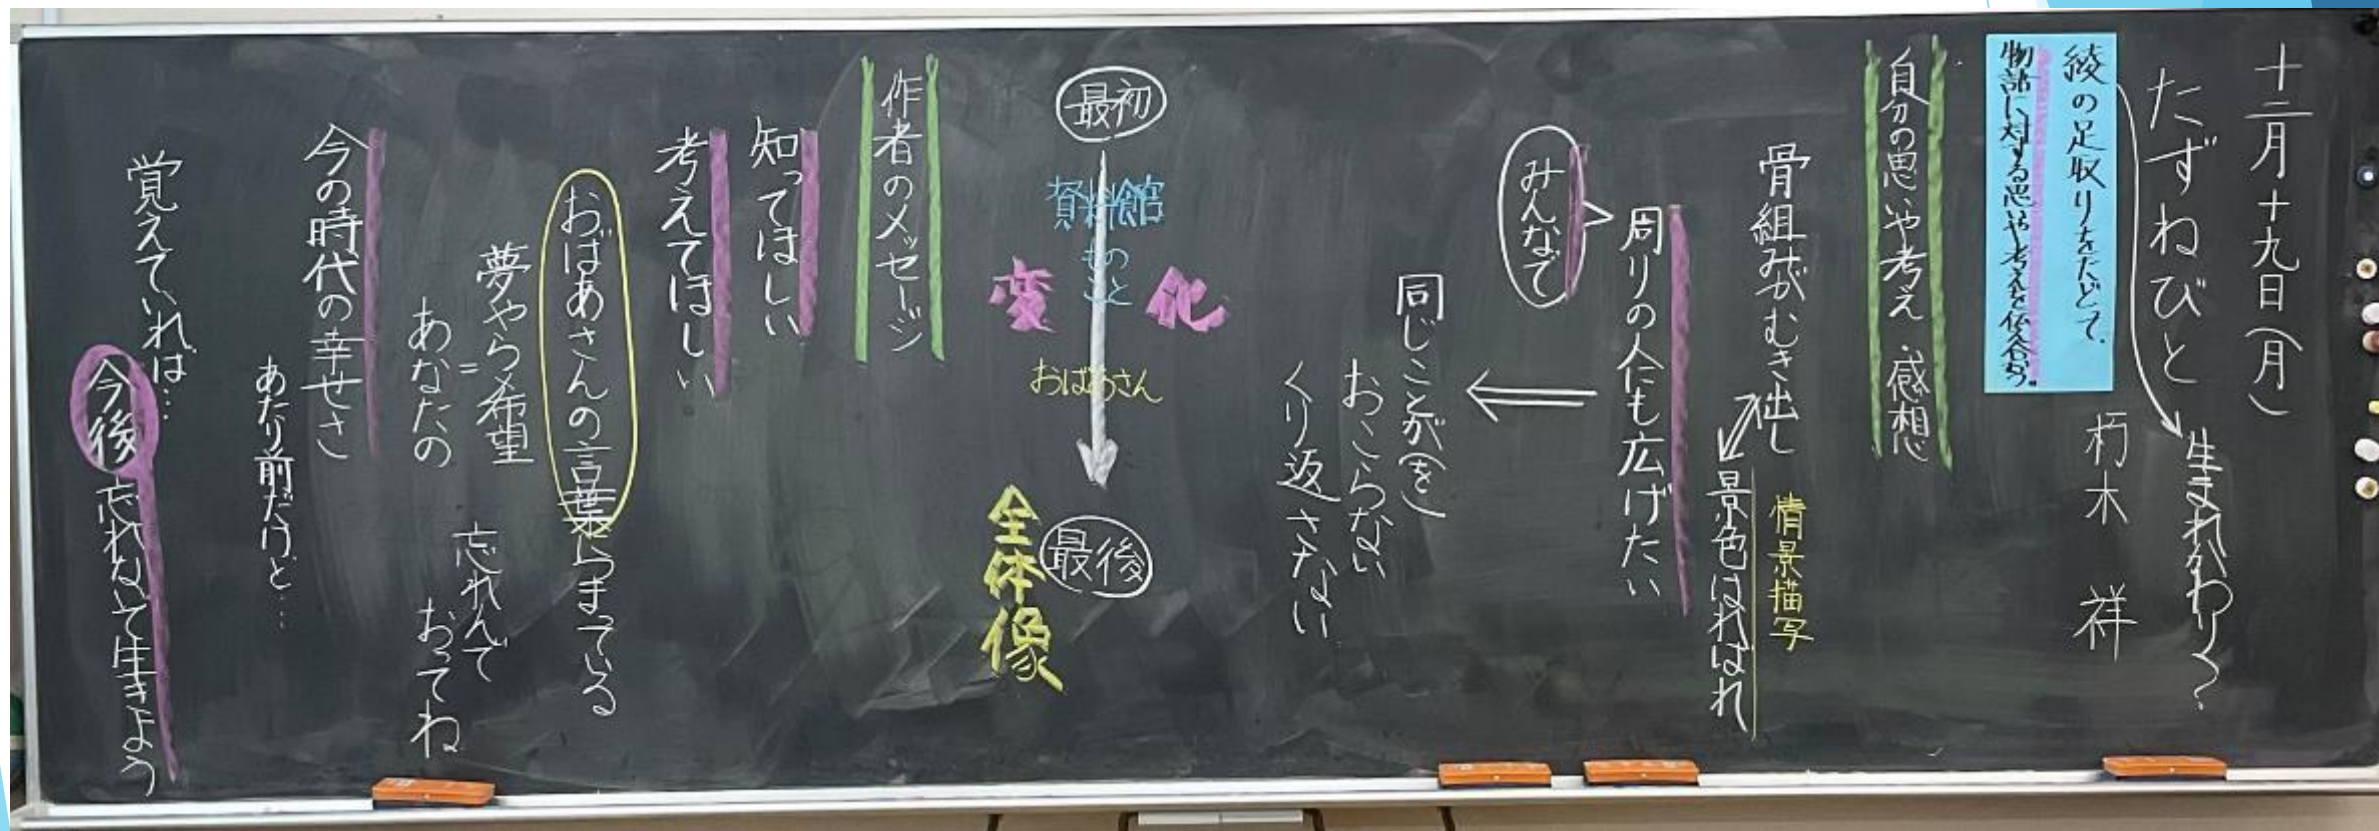 十二月十九日(月)
たずねびと
生まれかわり?
朽木 祥
綾の足取りをたどって、
物語に対する思いや考えを伝え合おう。
自分の思いや考え・感想
骨組みがむき出し
情景描写
景色はればれ
周りの人にも広げたい
みんなで
同じことが(を)
おこらない
くり返さない
最初
資料館
ものこと
変化
おばあさん
最後
全体像
作者のメッセージ
知ってほしい
考えてほしい
おばあさんの言葉らまっている
夢や希望
=
あなたの
忘れんで
おってね
今の時代の幸せさ
あたり前だけど…
覚えていれば…
今後忘れないで生きよう